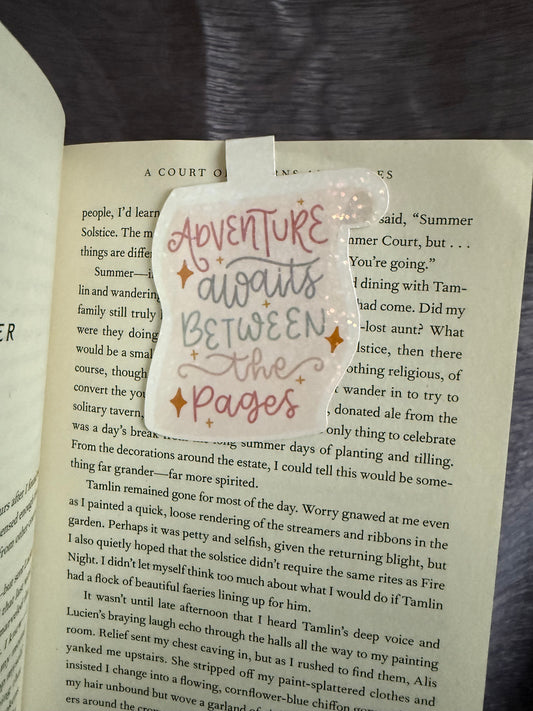 A COURT OF
ES
people, I'd learn
said, "Summer
Solstice. The m
mmer Court, but . . .
things are differ
You're going."
Summer—i
d dining with Tam-
lin and wandering
had come. Did my
family still truly
-lost aunt? What
were they doing
stice, then there
would be a smal
nothing religious, of
course, though
t wander in to try to
convert the you
, donated ale from the
solitary tavern,
only thing to celebrate
was a day's break from the long summer days of planting and tilling.
From the decorations around the estate, I could tell this would be some-
thing far grander—far more spirited.
Tamlin remained gone for most of the day. Worry gnawed at me even
as I painted a quick, loose rendering of the streamers and ribbons in the
garden. Perhaps it was petty and selfish, given the returning blight, but
I also quietly hoped that the solstice didn't require the same rites as Fire
Night. I didn't let myself think too much about what I would do if Tamlin
had a flock of beautiful faeries lining up for him.
It wasn't until late afternoon that I heard Tamlin's deep voice and
Lucien's braying laugh echo through the halls all the way to my painting
room. Relief sent my chest caving in, but as I rushed to find them, Alis
yanked me upstairs. She stripped off my paint-splattered clothes and
insisted I change into a flowing, cornflower-blue chiffon
my hair unbound but wove a garland of
ers around the
ADVENTURE
awaits
BETWEEN
the
pages
ER